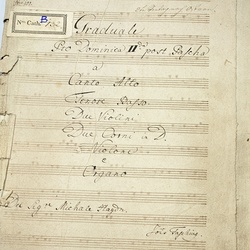 Graduale
Pro Dominica II da post Pascha
a
Canto Alto
Tenore Basso
Due Violini
Due Corni in D.
Violone
e
Organo
Del Sigre Michale Haydn